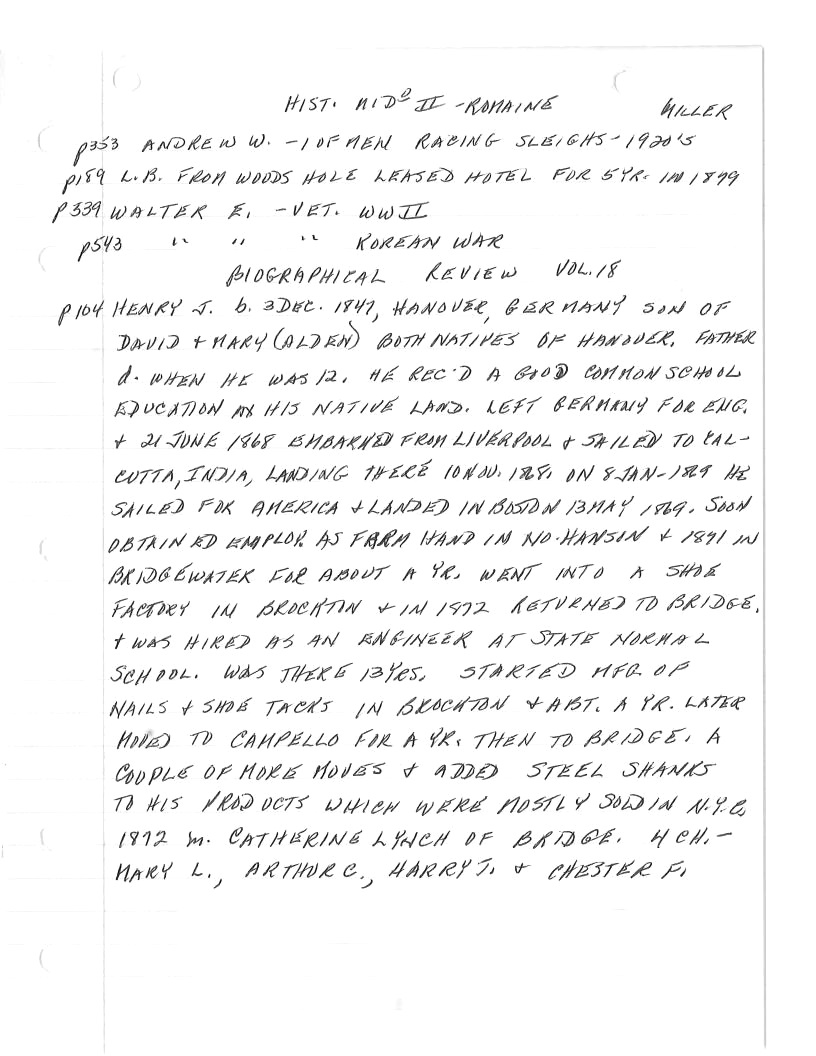 HIST. MIDO II - ROMAINE MILLER
p353 ANDREW W. - 1 OF MEN RACING SLEIGHS - 1920'S
p189 L.B. FROM WOODS HOLE LEASED HOTEL FOR 5 YR. IN 1899
P339 WALTER E. - VET. WW II
p543 " " " KOREAN WAR
BIOGRAPHICAL REVIEW VOL. 18
p104 HENRY J. b. 3 DEC. 1847, HANOVER, GERMANY SON OF
DAVID + MARY (ALDEN) BOTH NATIVES OF HANOVER. FATHER
d. WHEN HE WAS 12. HE REC'D A GOOD COMMON SCHOOL
EDUCATION IN HIS NATIVE LAND. LEFT GERMANY FOR ENG.
+ 21 JUNE 1868 EMBARKED FROM LIVERPOOL + SAILED TO CAL-
CUTTA, INDIA, LANDING THERE 10 NOV. 1868. ON 8 JAN - 1869 HE
SAILED FOR AMERICA + LANDED IN BOSTON 13 MAY 1869. SOON
OBTAINED EMPLOY. AS FARM HAND IN NO. HANSON + 1871 IN
BRIDGEWATER FOR ABOUT A YR. WENT INTO A SHOE
FACTORY IN BROCKTON + IN 1872 RETURNED TO BRIDGE.
+ WAS HIRED AS AN ENGINEER AT STATE NORMAL
SCHOOL. WAS THERE 13 YRS. STARTED MFG. OF
NAILS + SHOE TACKS IN BROCKTON + ABT. A YR. LATER
MOVED TO CAMPELLO FOR A YR. THEN TO BRIDGE. A
COUPLE OF MORE MOVES + ADDED STEEL SHANKS
TO HIS PRODUCTS WHICH WERE MOSTLY SOLD IN N.Y.C.
1872 m. CATHERINE LYNCH OF BRIDGE. 4 CH. -
MARY L., ARTHUR C., HARRY J. + CHESTER F.